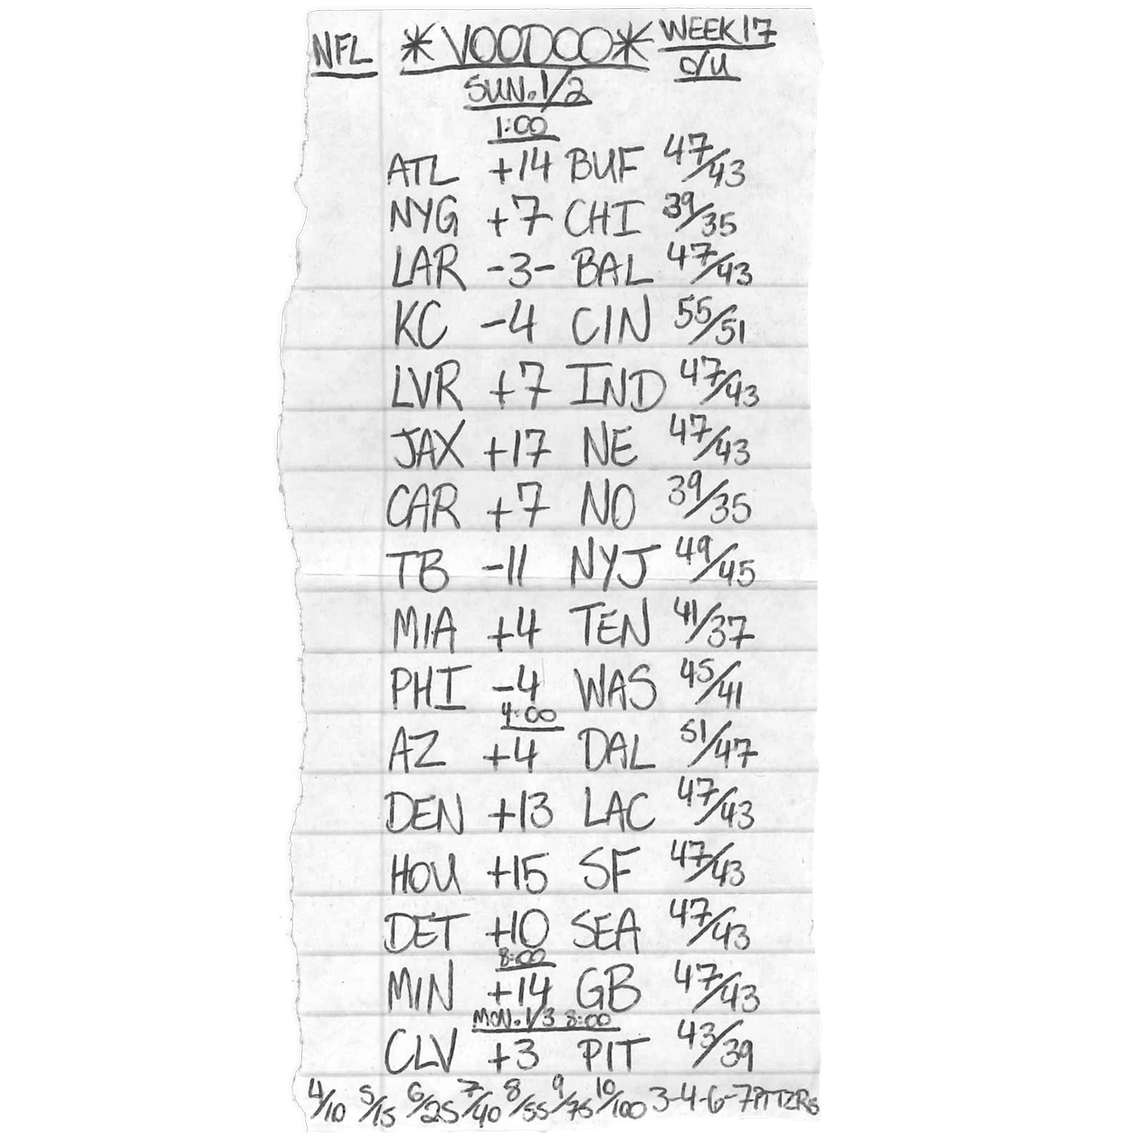 NFL *VOODOO* WEEK 17
O/U
SUN. 1/2
1:00
ATL +14 BUF 47/43
NYG +7 CHI 39/35
LAR -3- BAL 47/43
KC -4 CIN 55/51
LVR +7 IND 47/43
JAX +17 NE 47/43
CAR +7 NO 39/35
TB -11 NYJ 49/45
MIA +4 TEN 41/37
PHI -4 WAS 45/41
4:00
AZ +4 DAL 51/47
DEN +13 LAC 47/43
HOU +15 SF 47/43
DET +10 SEA 47/43
8:00
MIN +14 GB 47/43
MON. 1/3 8:00
CLV +3 PIT 43/39
4/10 5/15 6/25 7/40 8/55 9/75 10/100 3-4-6-7PTTZRS